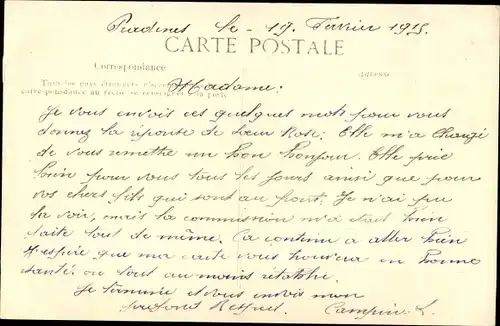 Pradines le - 19. Février 1915.
CARTE POSTALE
Correspondance
Tous les pays étrangers n'
correspondance au recto se la poste
Madame:
Je vous envois ces quelques mots pour vous
donnez la réponse de Sœur Rose; Elle m'a Chargé
de vous remettre un bon bonjour. Elle prie
bien pour vous tous les jours ainsi que pour
vos chers fils qui sont au front. Je n'ai pu
la voir, mais la commission m'a était bien
faite tout de même. Ca continu a aller bien
J'espère que ma carte vous trouvera en bonne
santé. ou tout au moins rétablie.
Je termine et vous envois mon
profont Respect. L.